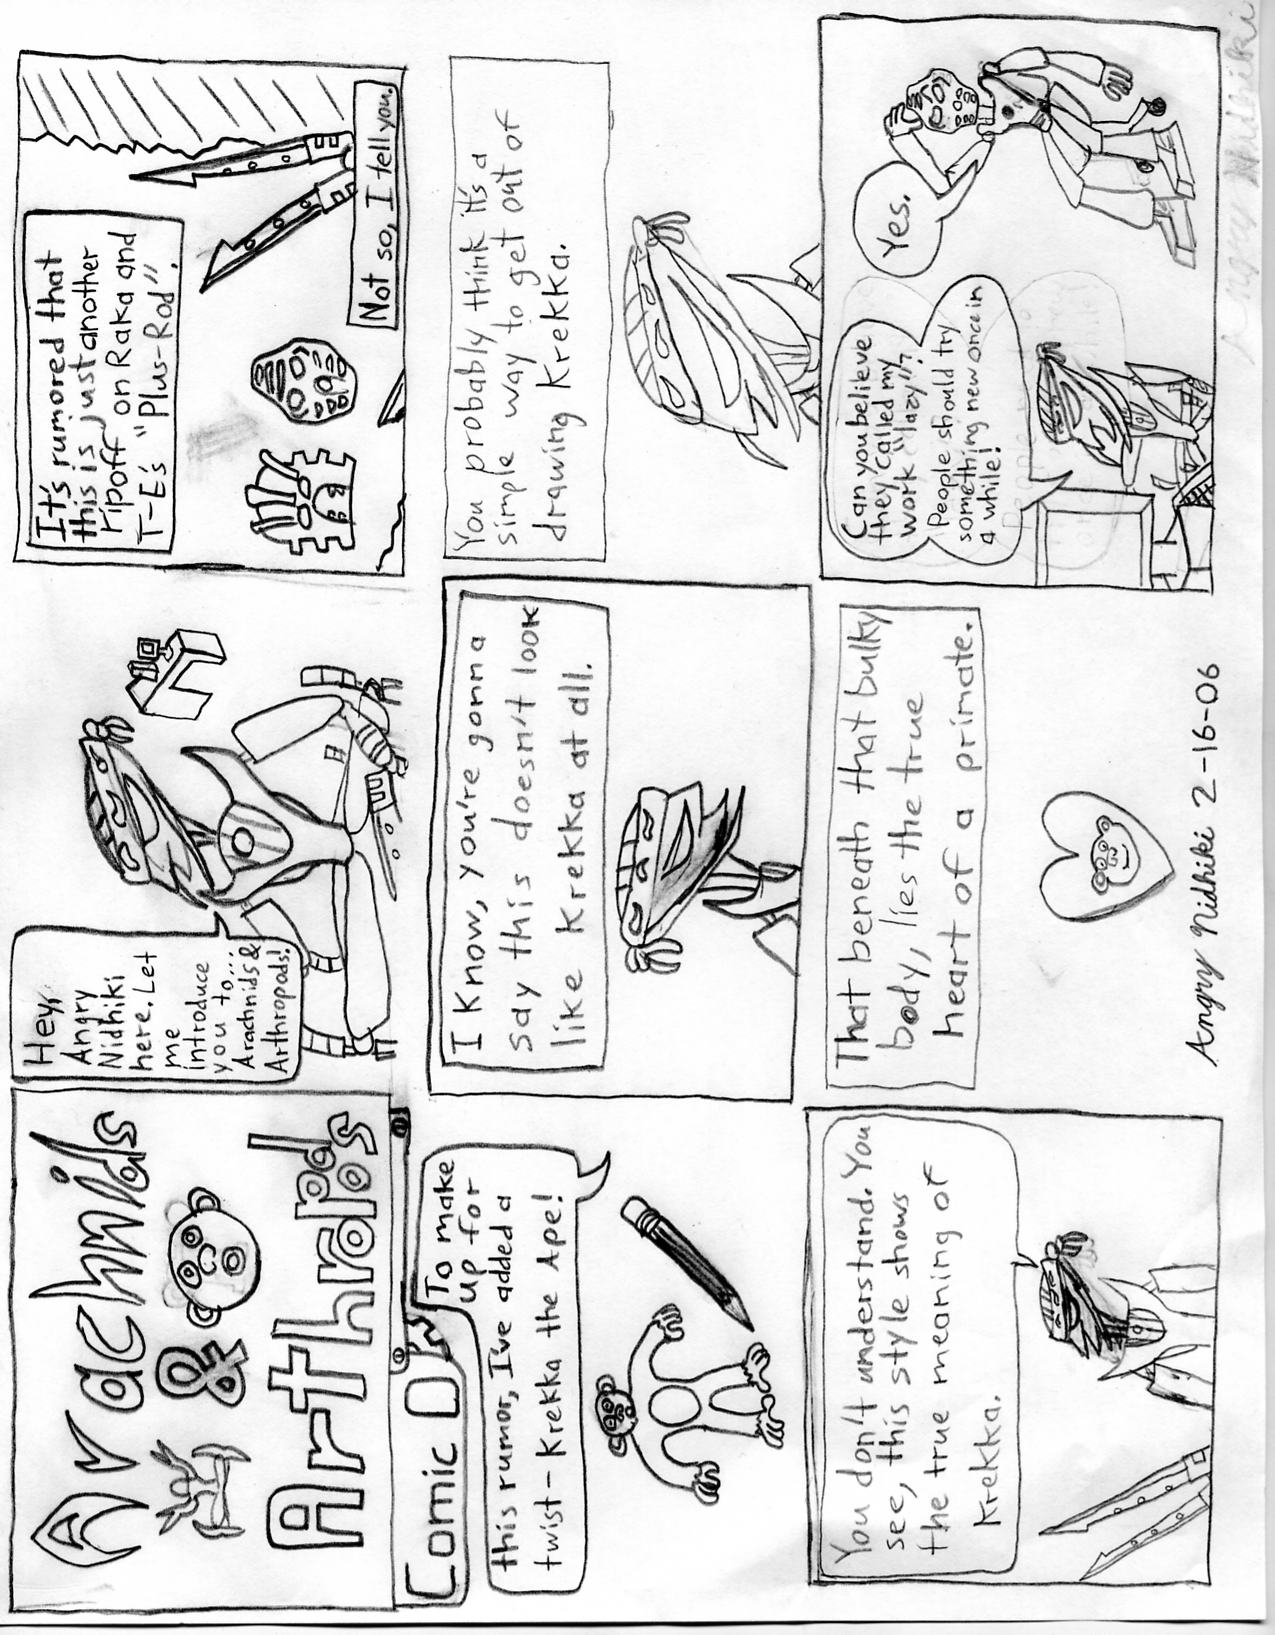 Arachnids
&
Arthropods
Comic 0
Hey,
Angry
Nidhiki
here. Let
me
introduce
you to...
Arachnids &
Arthropods!
It's rumored that
this is just another
ripoff on Raka and
T-E's "Plus-Rod".
Not so, I tell you.
To make
up for
this rumor, I've added a
twist-Krekka the Ape!
I know, you're gonna
say this doesn't look
like Krekka at all.
You probably think it's a
simple way to get out of
drawing Krekka.
You don't understand. You
see, this style shows
the true meaning of
Krekka.
That beneath that bulky
body, lies the true
heart of a primate.
Can you believe
they called my
work "lazy"?
People should try
something new once in
a while!
Yes.
Angry Nidhiki 2-16-06
Angry Nidhiki